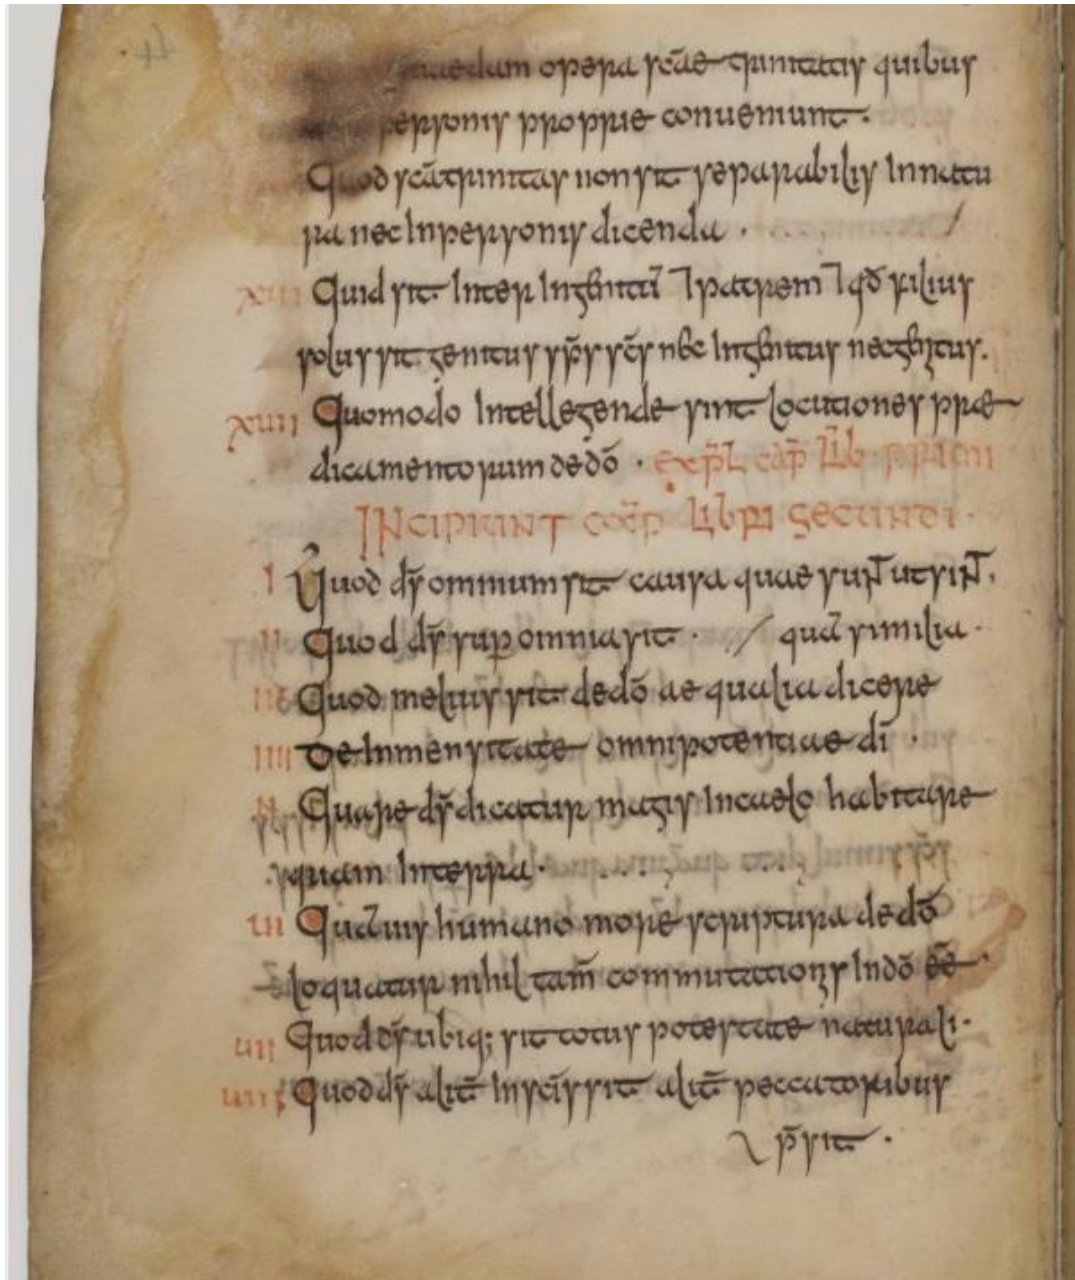 opera sc̄ae trinitatis quibus
personis proprie conueniunt ·
Quod sc̄a trinitas non sit separabilis In natu
ra nec In personis dicenda ·
xiii Quid sit Inter Ingenitū ⁊ patrem ⁊ qđ filius
solus sit genitus sp̄s sc̄s nec Ingenitus nec genitus.
xiiii Quomodo Intellegende sint locutiones præ
dicamentorum de dō · expl̄ cap̄ lib̄ primi
INCIPIUNT cap̄ libri secundi ·
I Quod dš omnium sit causa quae sun̄t ut sin̄t.
II Quod dš sup omnia sit · / quā similia ·
III Quod melius sit de dō aequalia dicere
IIII De Inmensitate omnipotentiae dī ·
u Quare dš dicatur magis In caelo habitare
quam In terra ·
ui Quāuis humano more scriptura de dō
loquatur nihil tam̄ commutationis In dō eē ·
uii Quod dš ubiq; sit totus potestate naturali ·
uiii Quod dš alit̄ In sc̄is sit alit̄ peccatoribus
p̄sit ·